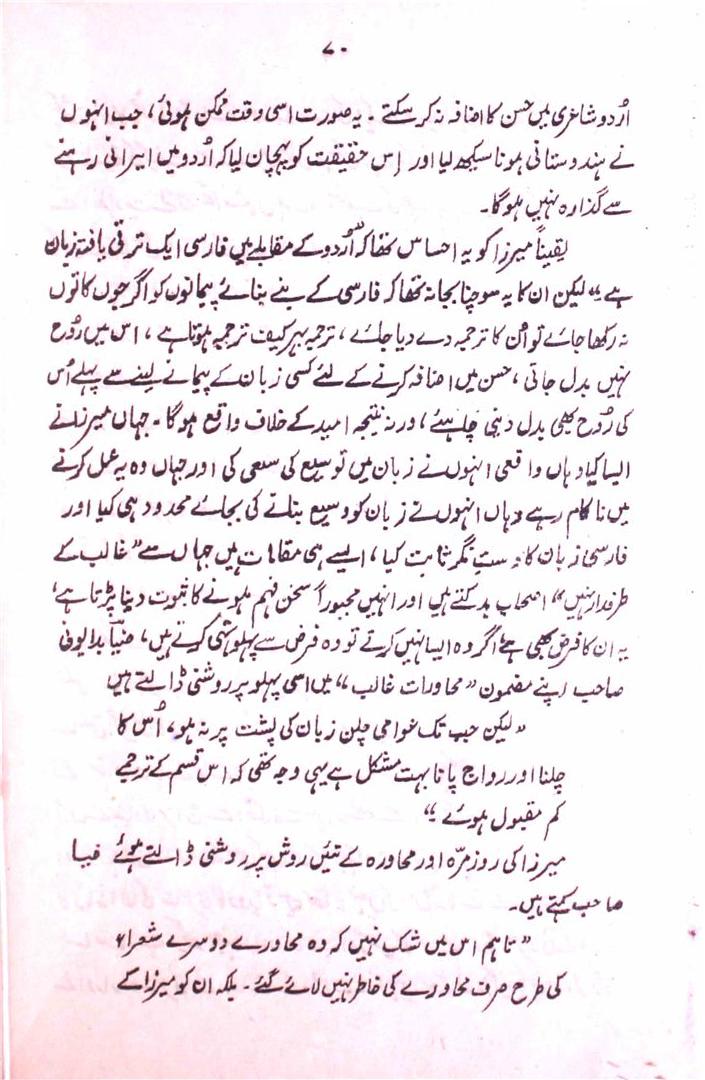 ۷۰
اُردو شاعری میں حسن کا اضافہ نہ کر سکتے ۔ یہ صورت اسی وقت ممکن ہوئی ، جب انہوں
نے ہندوستانی ہونا سیکھ لیا اور اِس حقیقت کو پہچان لیا کہ اُردو میں ایرانی رہنے
سے گذارہ نہیں ہوگا ۔
یقیناً میرزا کو یہ احساس تھا کہ اُردو کے مقابلے میں فارسی ایک ترقی یافتہ زبان
ہے ؛ لیکن ان کا یہ سوچنا بجا نہ تھا کہ فارسی کے بنے بنائے پیمانوں کو اگر جوں کا توں
نہ رکھا جائے تو اُن کا ترجمہ دے دیا جائے ، ترجمہ بہر کیف ترجمہ ہوتا ہے ، اس میں رُوح
نہیں بدل جاتی ، حسن میں اضافہ کرنے کے لئے کسی زبان کے پیمانے لینے سے پہلے اُس
کی رُوح بھی بدل دینی چاہیئے ، ورنہ نتیجہ امید کے خلاف واقع ہوگا ۔ جہاں میرزا نے
ایسا کیا وہاں واقعی انہوں نے زبان میں توسیع کی سعی کی اور جہاں وہ یہ عمل کرتے
میں ناکام رہے وہاں انہوں نے زبان کو وسیع بنانے کی بجائے محدود ہی کیا اور
فارسی زبان کا دستِ نگر ثابت کیا ، ایسے ہی مقامات ہیں جہاں سے "غالب کے
طرفدار نہیں" اصحاب بدکتے ہیں اور انہیں مجبوراً سخن فہم ہونے کا ثبوت دینا پڑتا ہے ،
یہ ان کا فرض بھی ہے اگر وہ ایسا نہیں کرتے تو وہ فرض سے پہلو تہی کرتے ہیں ، ضیا بدایونی
صاحب اپنے مضمون "محاورات غالب" میں اسی پہلو پر روشنی ڈالتے ہیں
"لیکن جب تک عوامی چلن زبان کی پشت پر نہ ہو ، اُس کا
چلنا اور رواج پانا بہت مشکل ہے یہی وجہ تھی کہ اس قسم کے ترجمے
کم مقبول ہوئے ۔"
میرزا کی روز مرّہ اور محاورہ کے تئیں روش پر روشنی ڈالتے ہوئے ضیا
صاحب کہتے ہیں ۔
"تاہم اس میں شک نہیں کہ وہ محاورے دوسرے شعراء
کی طرح صرف محاورے کی خاطر نہیں لائے گئے ۔ بلکہ ان کو میرزا کے